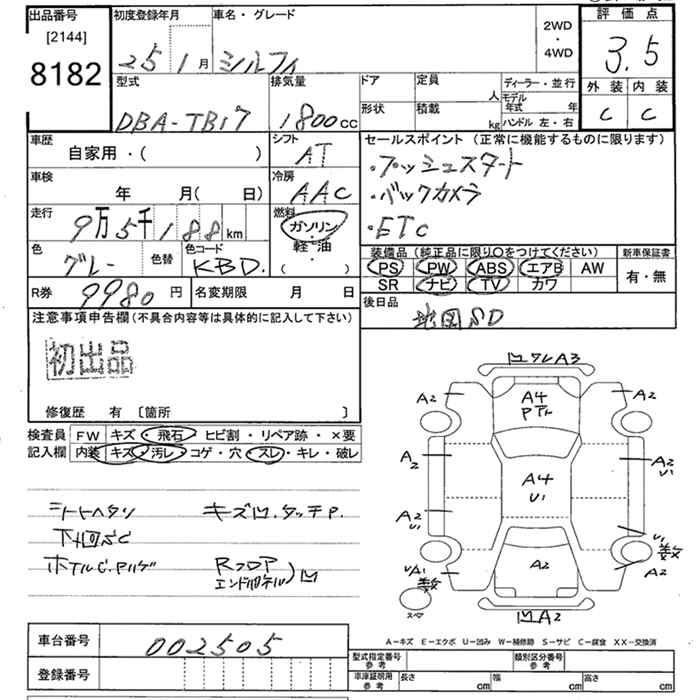 出品番号
[2144]
8182
初度登録年月
25 1月
車名・グレード
シルフィ
2WD
・
4WD
評価点
3.5
外装 内装
C C
型式
DBA-TB17
排気量
1800cc
ドア
形状
定員
人
積載
kg
ディーラー・並行
モデル年式 年
ハンドル 左・右
車歴
自家用・( )
シフト
AT
車検
年 月( 日)
冷房
AAC
走行
9万5千188km
燃料
ガソリン
・
軽・油
・
( )
色
グレー
色替
色コード
KBD.
R券
9980円
名変期限 月 日
セールスポイント (正常に機能するものに限ります)
・プッシュスタート
・バックカメラ
・ETC
装備品 (純正品に限り○をつけてください)
新車保証書
PS PW ABS エアB AW
SR ナビ TV カワ
有・無
後日品
地図SD
注意事項申告欄(不具合内容等は具体的に記入して下さい)
初出品
修復歴 有 〔箇所 〕
検査員記入欄
FW キズ・飛石・ヒビ割・リペア跡・×要
内装 キズ・汚レ・コゲ・穴・スレ・キレ・破レ
シートヘタリ キズ凹.タッチP.
下回SC
Rフロア
A3
A2 A4 A2
A2 A4 U1 A2 U1
A2 U1 U1
UA1 数 A2 A2 数
スペア
凹A2
A-キズ E-エクボ U-凹み W-補修跡 S-サビ C-腐食 XX-交換済
車台番号
002505
登録番号
型式指定番号 参考
類別区分番号 参考
車庫証明用 参考
長さ cm 幅 cm 高さ cm